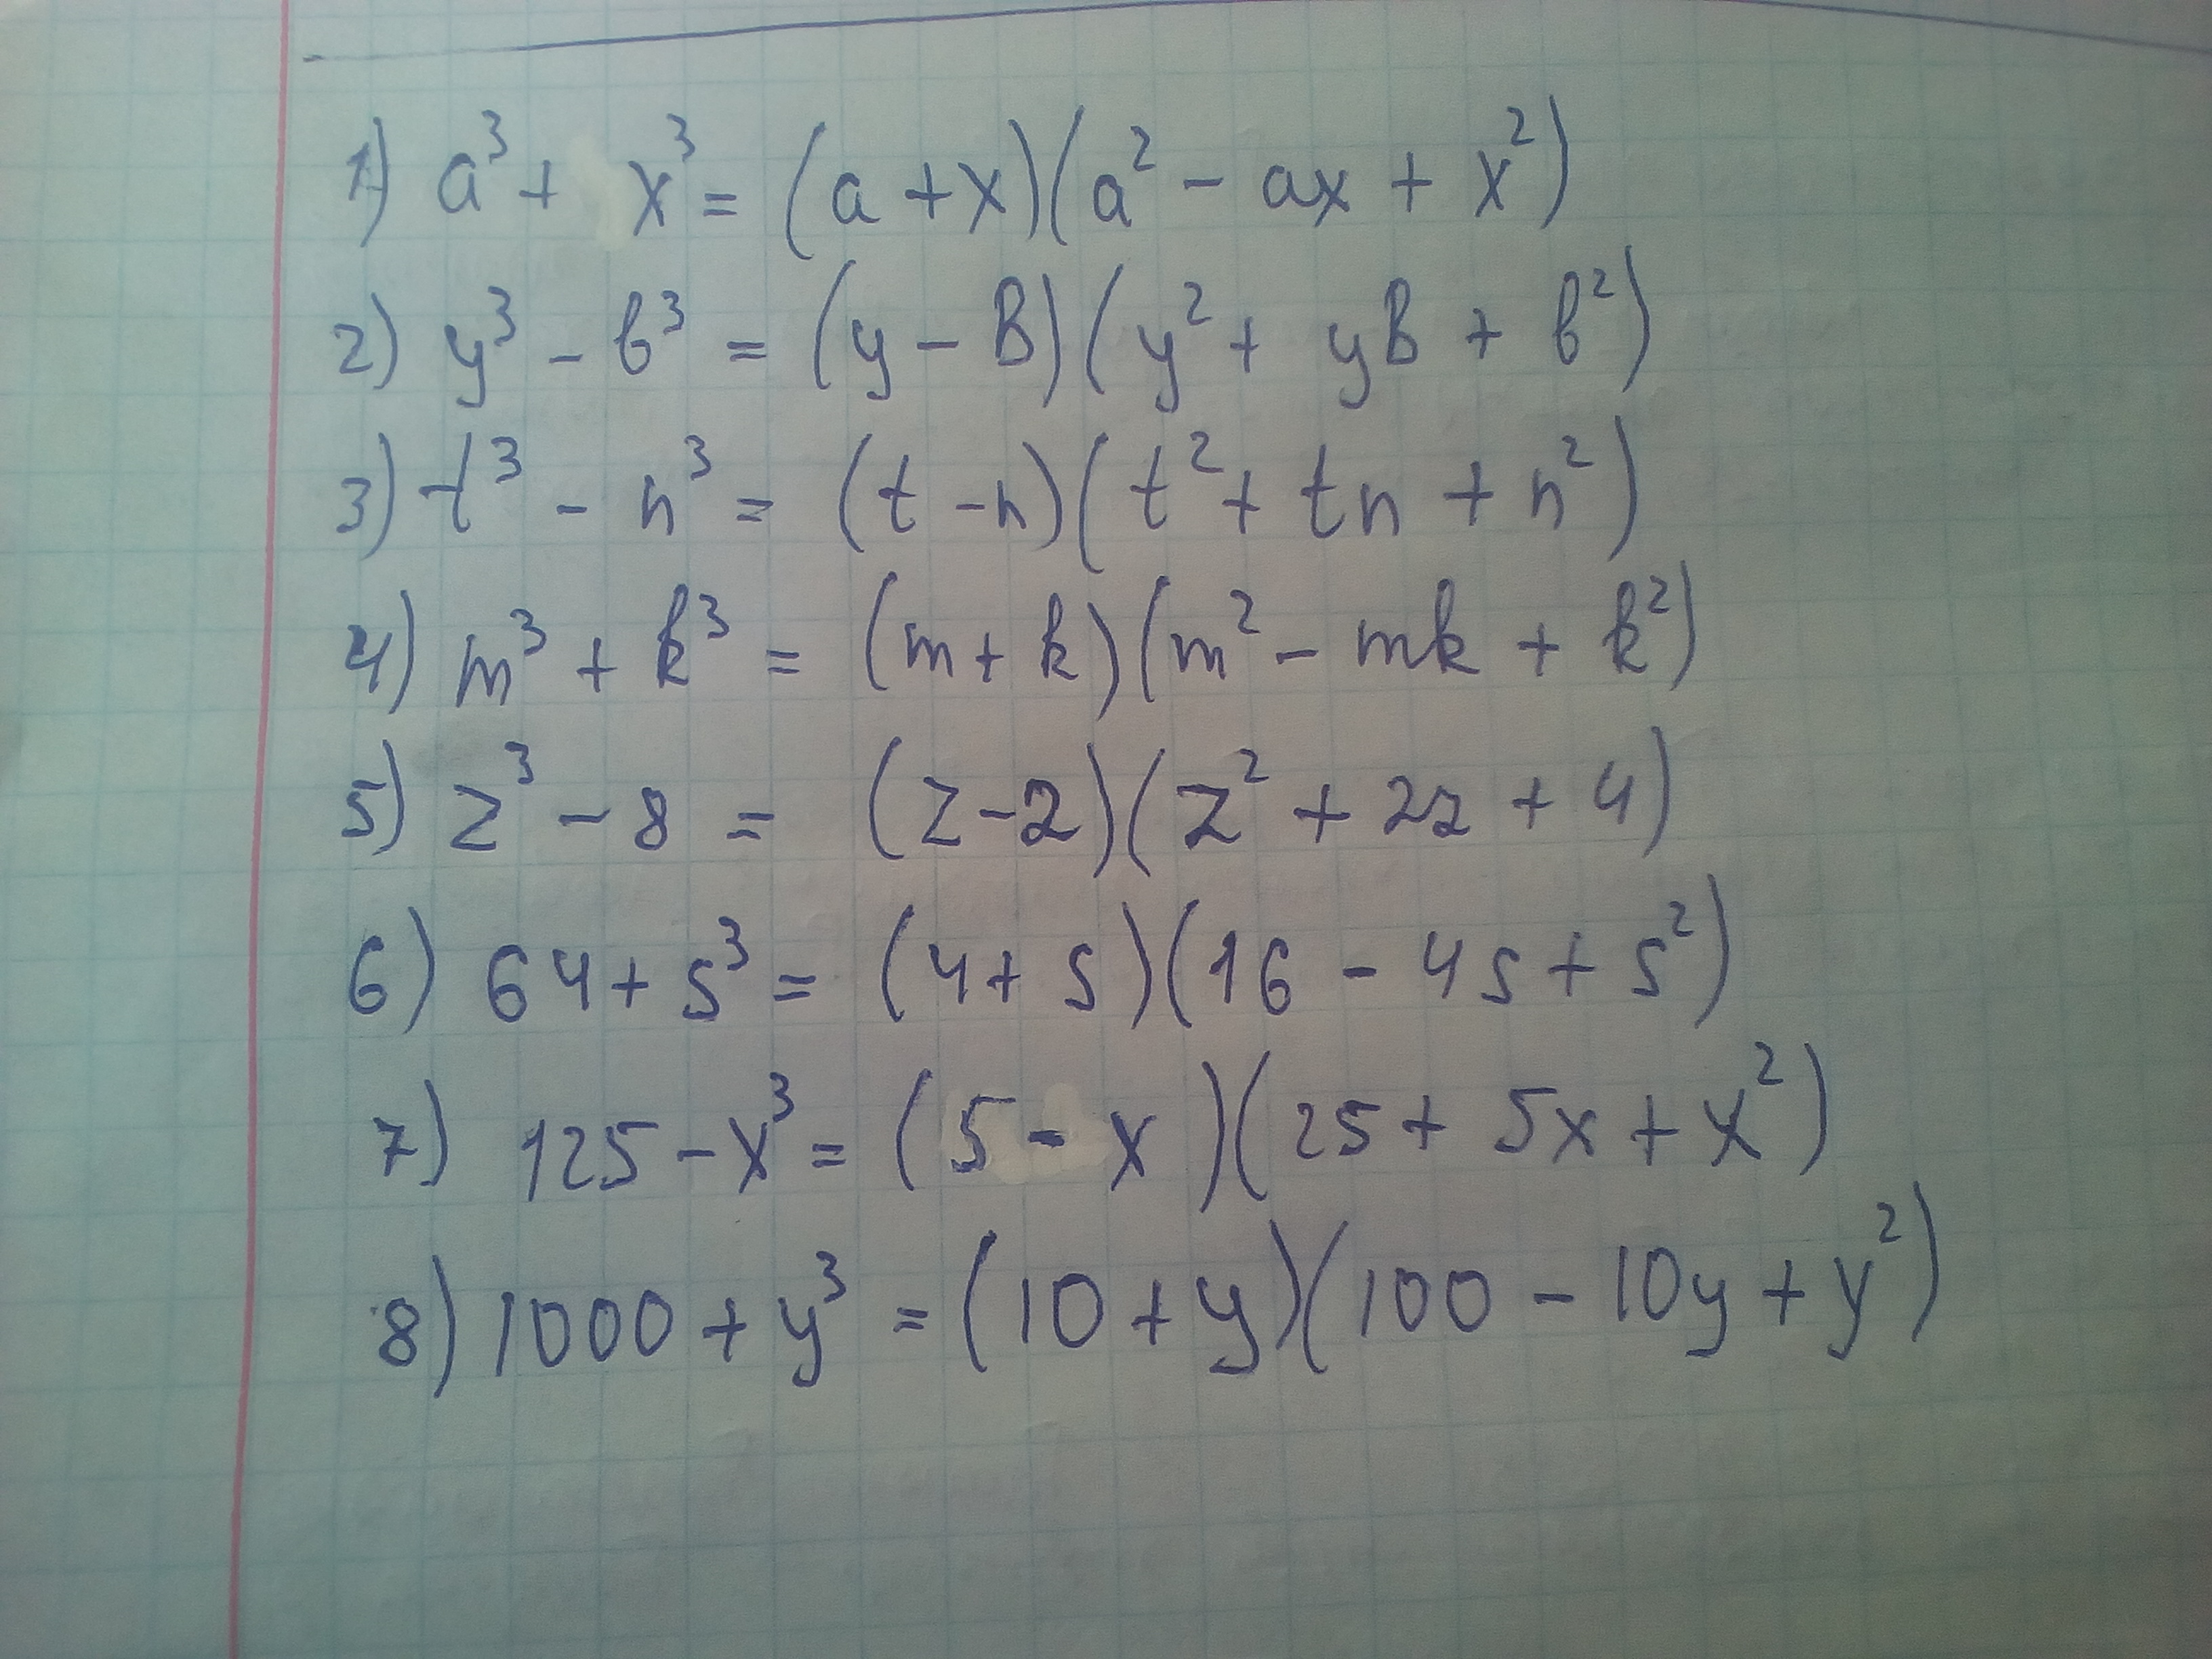 1) a³ + x³ = (a + x)(a² - ax + x²)
2) y³ - b³ = (y - B)(y² + yB + b²)
3) t³ - n³ = (t - n)(t² + tn + n²)
4) m³ + k³ = (m + k)(m² - mk + k²)
5) z³ - 8 = (z - 2)(z² + 2z + 4)
6) 64 + s³ = (4 + s)(16 - 4s + s²)
7) 125 - x³ = (5 - x)(25 + 5x + x²)
8) 1000 + y³ = (10 + y)(100 - 10y + y²)